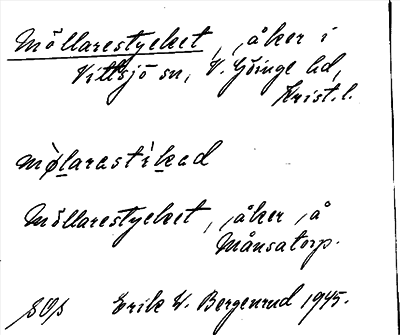 Möllarestycket, åker i
Vittsjö sn, V. Göinge hd,
Krist. l.
mø̀larastìkad
Möllarestycket, åker å
Månsatorp.
Erik W. Bergenrud 1945.